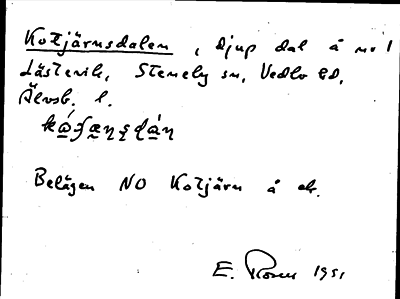 Kotjärnsdalen, djup dal å nr 1
Lästevik, Steneby sn, Vedbo hd,
Älvsb. l.
Belägen NO Kotjärn å ek.
E. Rosen 1951